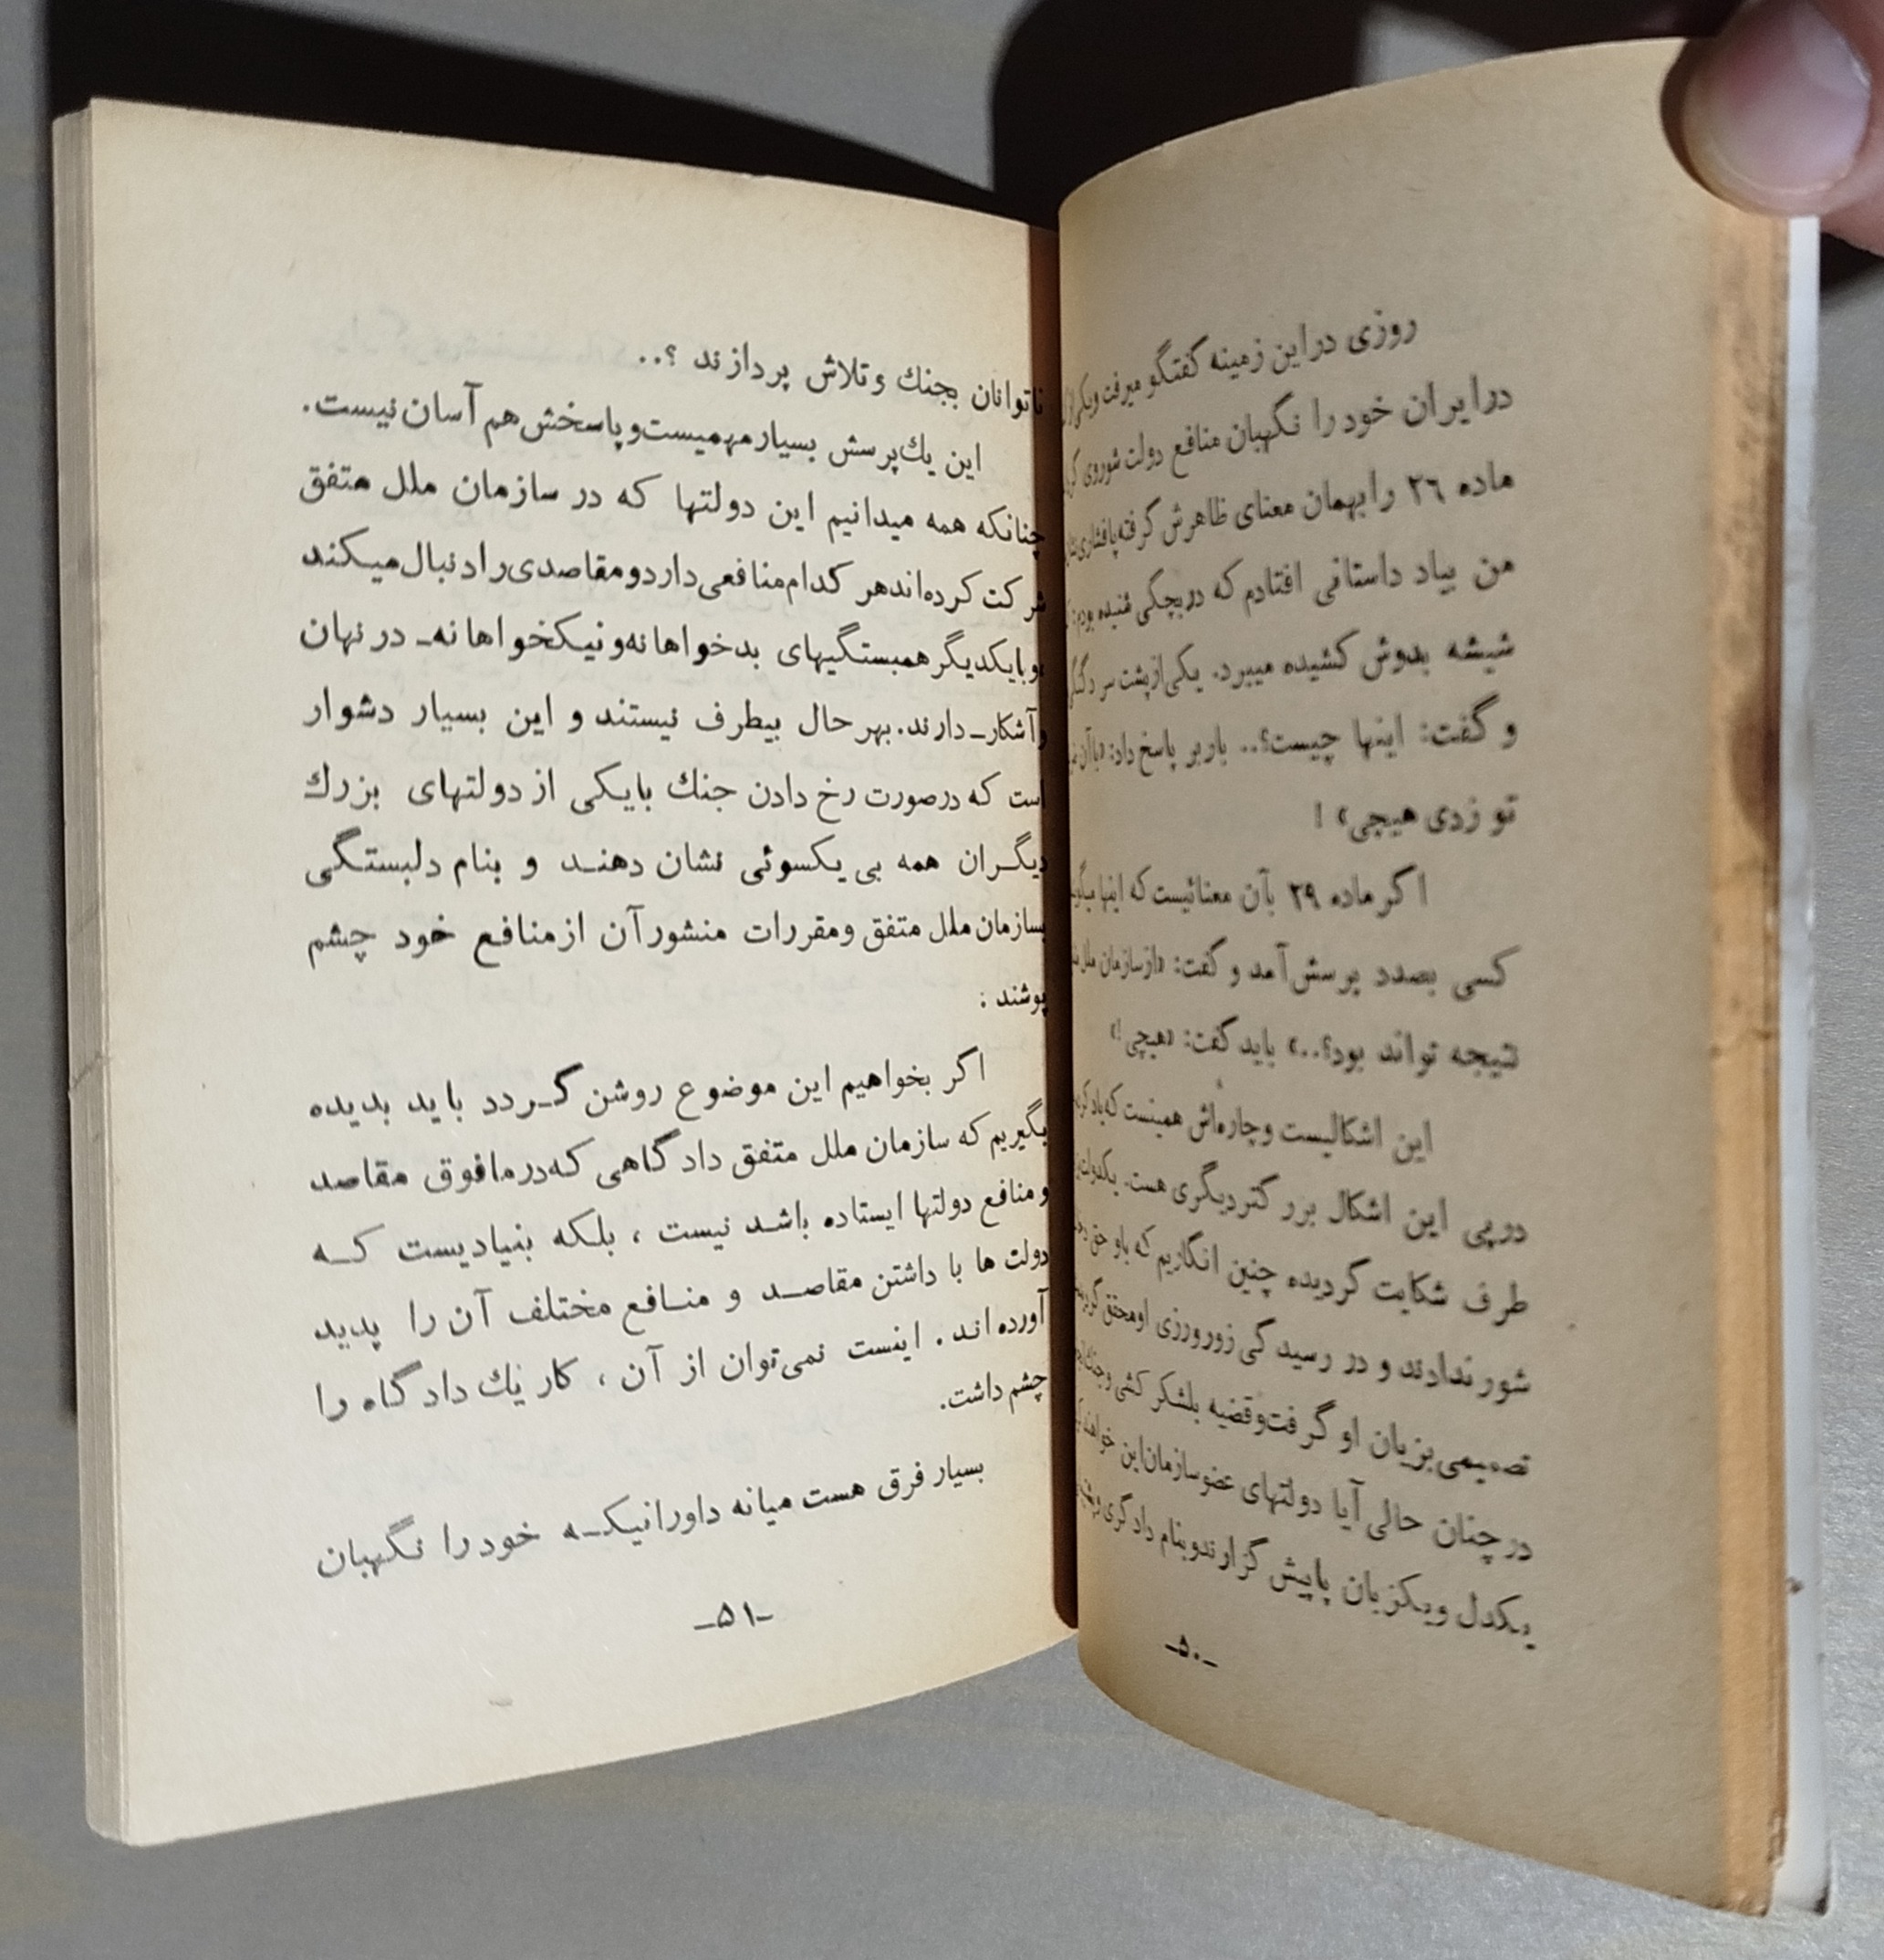 روزی در این زمینه گفتگو میرفت ویکی از
در ایران خود را نگهبان منافع دولت شوروی
ماده ۲۶ را بهمان معنای ظاهرش گرفته پافشاری
من بیاد داستانی افتادم که در بچگی شنیده بودم:
شیشه بدوش کشیده میبرد. یکی از پشت سر
و گفت: اینها چیست؟.. باربر پاسخ داد: «با آن
تو زدی هیچی» !
اگر ماده ۲۹ بآن معنائیست که اینها
کسی بصدد پرسش آمد و گفت: «از سازمان ملل
نتیجه تواند بود؟..» باید گفت: «هیچی!»
این اشکالیست و چاره‌اش همینست که یاد
در پی این اشکال بزرگتر دیگری هست. یکدولت
طرف شکایت گردیده چنین انگاریم که باو حق
شور ندادند و در رسیدگی زورورزی او محقق
تصمیمی بزیان او گرفت و قضیه بلشکر کشی و جنگ
در چنان حالی آیا دولتهای عضو سازمان این خواهند
یکدل و یکزبان پاپیش گزارند و بنام دادگری
-۵۰-
ناتوانان بجنك و تلاش پردازند ؟..
این یك پرسش بسیار مهمیست و پاسخش هم آسان نیست.
چنانکه همه میدانیم این دولتها که در سازمان ملل متفق
شرکت کرده‌اند هر کدام منافعی دارد و مقاصدی را دنبال میکند
و با یکدیگر همبستگیهای بدخواهانه و نیکخواهانه- در نهان
و آشکار- دارند. بهر حال بیطرف نیستند و این بسیار دشوار
است که در صورت رخ دادن جنك با یکی از دولتهای بزرك
دیگران همه بی یکسوئی نشان دهند و بنام دلبستگی
بسازمان ملل متفق و مقررات منشور آن از منافع خود چشم
پوشند :
اگر بخواهیم این موضوع روشن گردد باید بدیده
بگیریم که سازمان ملل متفق دادگاهی که در مافوق مقاصد
و منافع دولتها ایستاده باشد نیست ، بلکه بنیادیست که
دولت ها با داشتن مقاصد و منافع مختلف آن را پدید
آورده اند . اینست نمی‌توان از آن ، کار یك دادگاه را
چشم داشت.
بسیار فرق هست میانه داورانیکه خود را نگهبان
-۵۱-